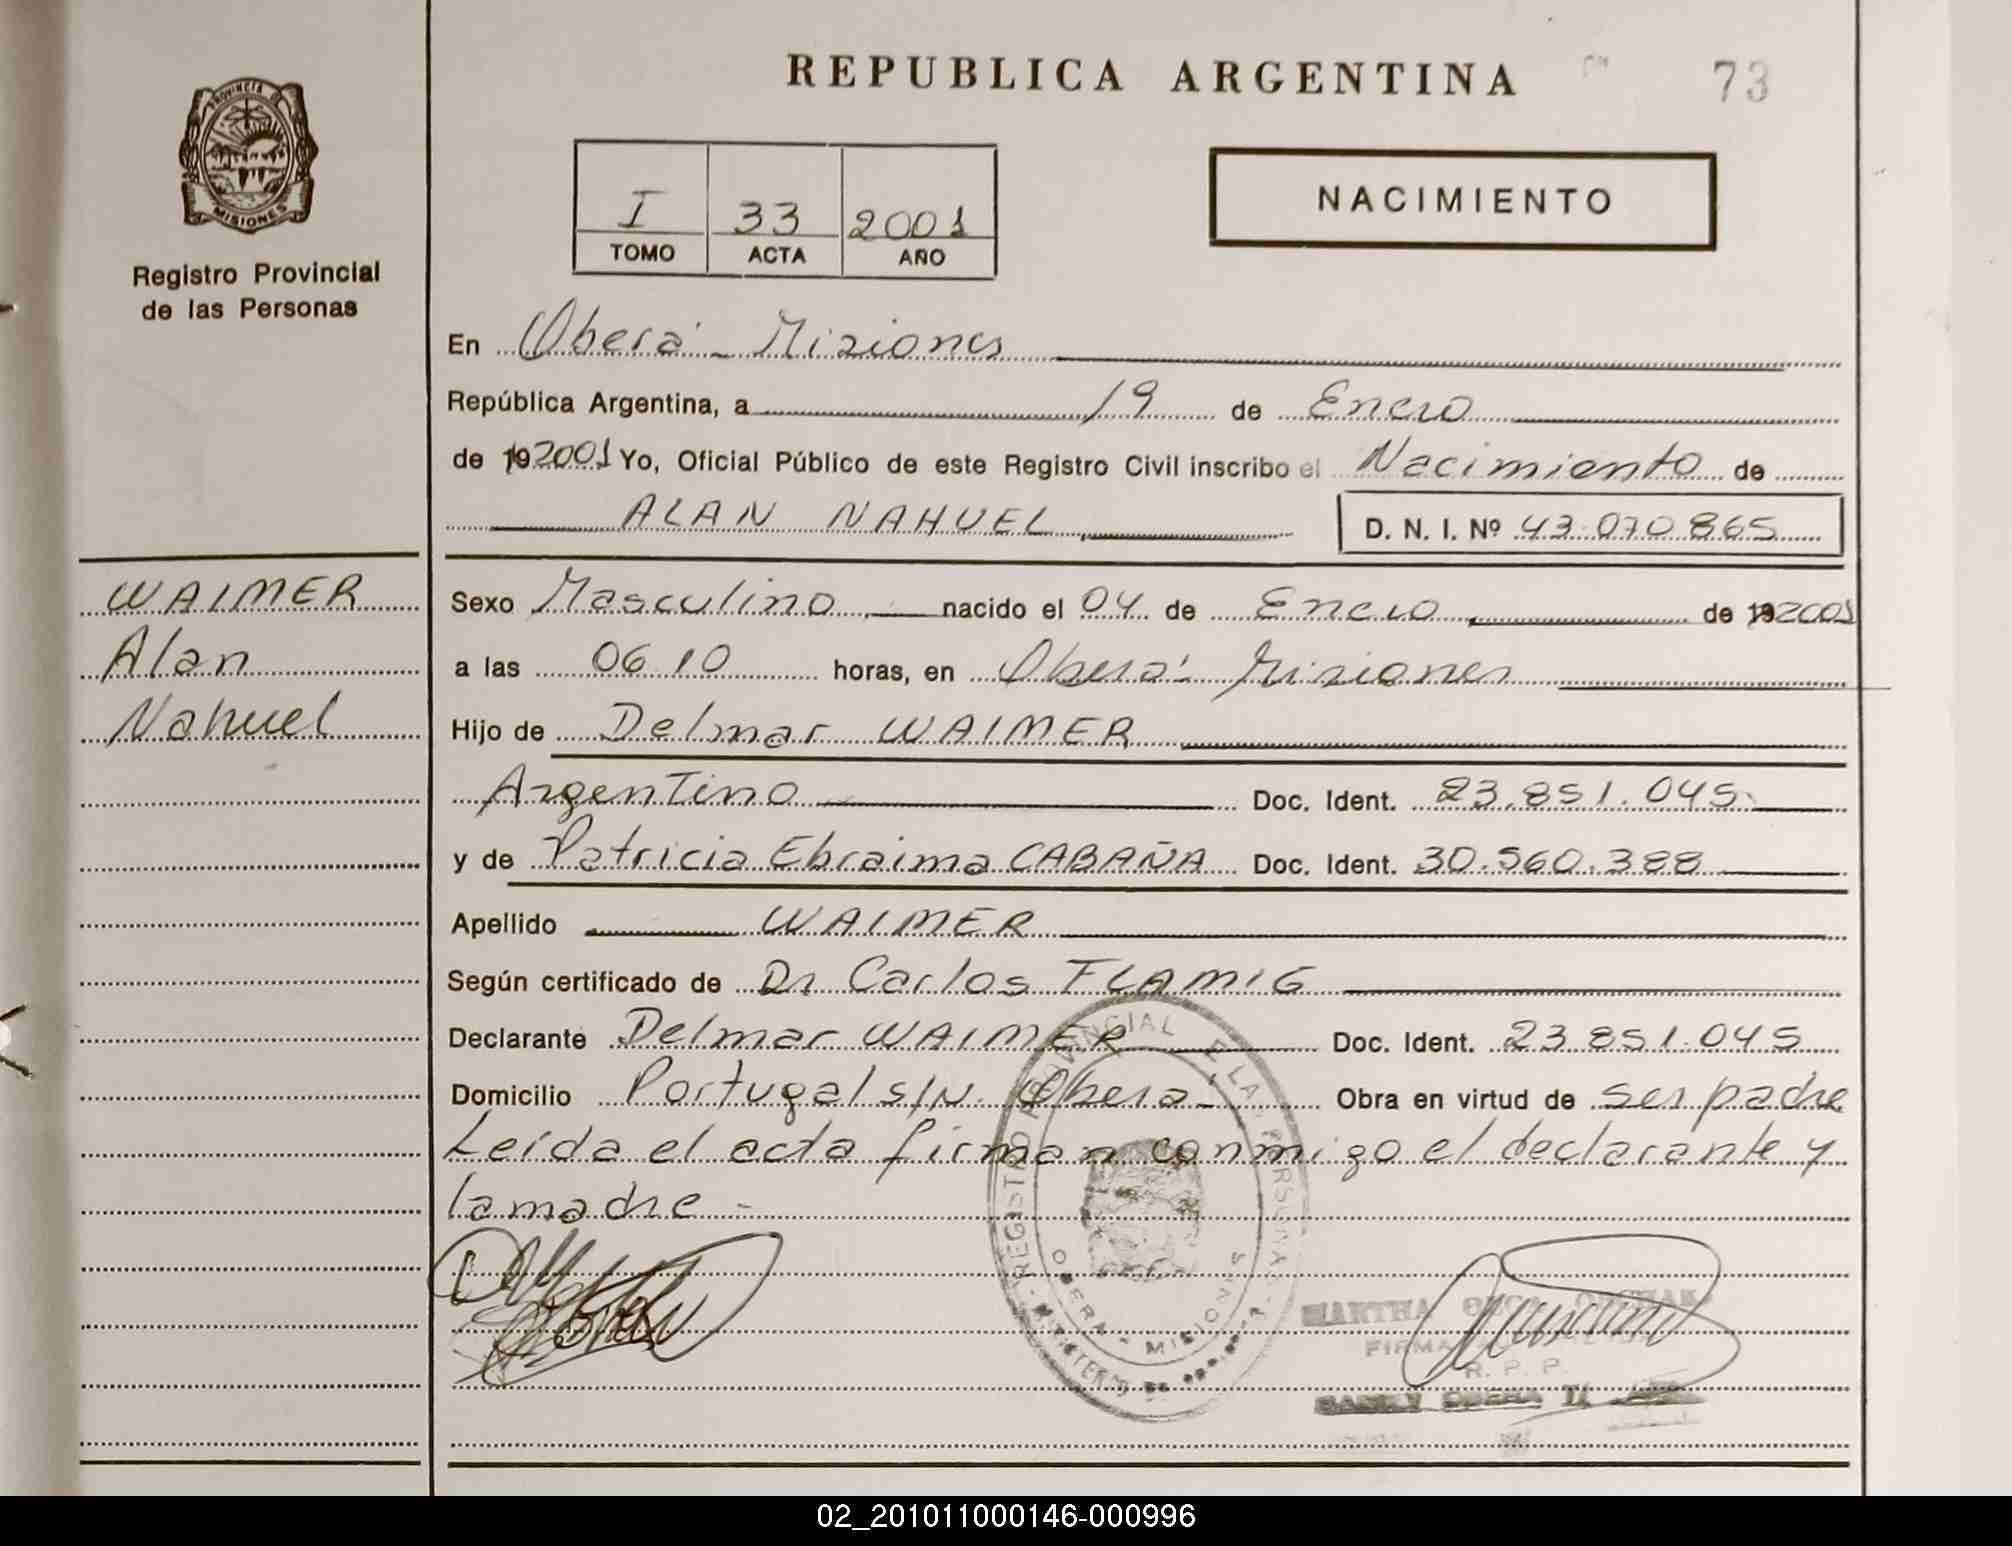 REPUBLICA ARGENTINA 73
PROVINCIA DE
MISIONES
Registro Provincial
de las Personas
I 33 2001
TOMO ACTA AÑO
NACIMIENTO
En Oberá - Misiones
República Argentina, a 19 de Enero
de 192001 Yo, Oficial Público de este Registro Civil inscribo el Nacimiento de
ALAN NAHUEL D. N. I. Nº 43.070.865
WAIMER
Alan
Nahuel
Sexo Masculino nacido el 04 de Enero de 192001
a las 06.10 horas, en Oberá - Misiones
Hijo de Delmar WAIMER
Argentino Doc. Ident. 23.851.045
y de Patricia Ebraima CABAÑA Doc. Ident. 30.560.388
Apellido WAIMER
Según certificado de Dr Carlos FLAMIG
Declarante Delmar WAIMER Doc. Ident. 23.851.045
Domicilio Portugal s/N. Oberá - Obra en virtud de ser padre
Leída el acta firman conmigo el declarante y
la madre -
REGISTRO PROVINCIAL DE LAS PERSONAS
OBERA - MISIONES
MARTHA
FIRMA
R. P. P.
OBERA
02_201011000146-000996